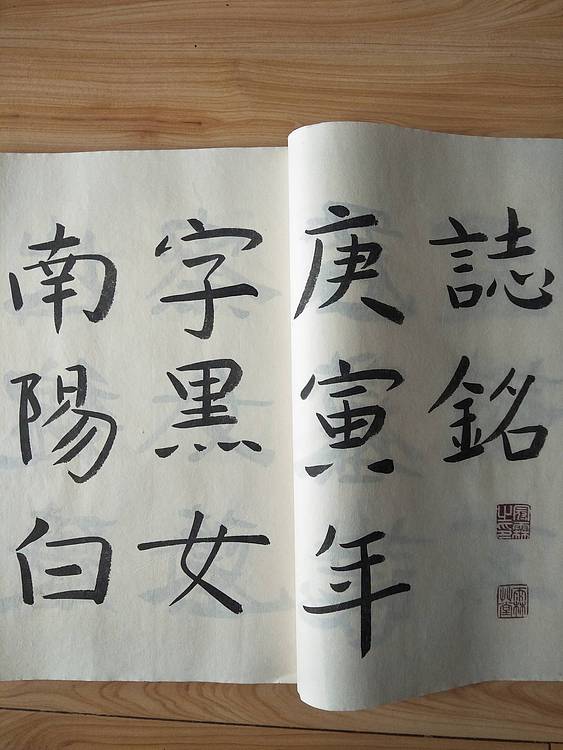 誌銘
庚寅年
字黑女
南陽白